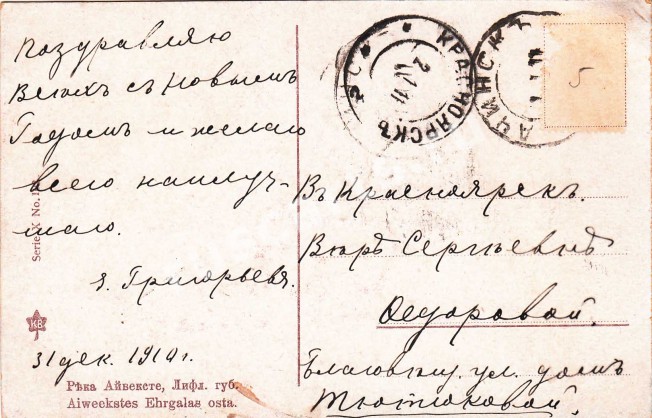 Поздравляю
Всѣхъ съ Новымъ
Годомъ и желаю
всего наилуч-
шаго.
З. Григорьева
31 дек. 1910 г.
Serie X No. 1
KB
Рѣка Айвексте, Лифл. губ.
Aiweekstes Ehrgalas osta.
КРАСНОЯРСКЪ
АЧИНСКЪ
5
Въ Красноярск.
Вѣрѣ Сергѣевнѣ
Ѳедоровой.
Благовѣщ. ул. домъ
Тютюковой.